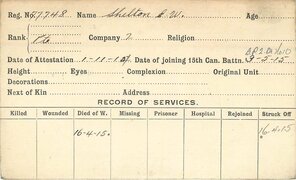 Reg. No. 27748 Name Shelton E.W. Age
Rank Pte Company 2 Religion
Date of Attestation 1-11-14 Date of Joining 15th Can. Battn. 3-5-15
Height Eyes Complexion Original Unit
Decorations
Next of Kin Address
RECORD OF SERVICES.
Killed Wounded Died of W. Missing Prisoner Hospital Rejoined Struck Off
16-4-15. 16.4.15